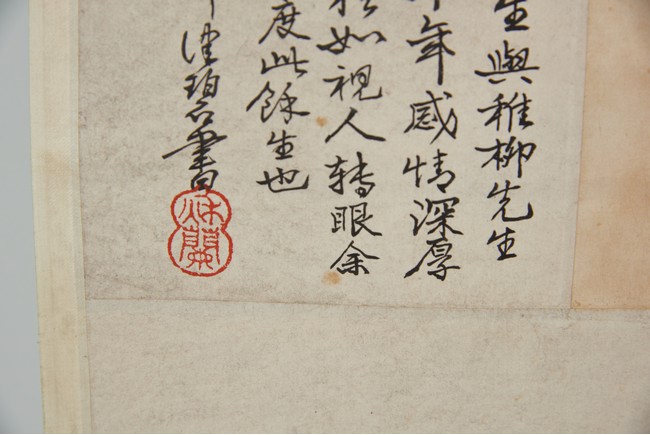 生與稚柳先生
年感情深厚
如視人轉眼余
度此餘生也
碧書
蘭